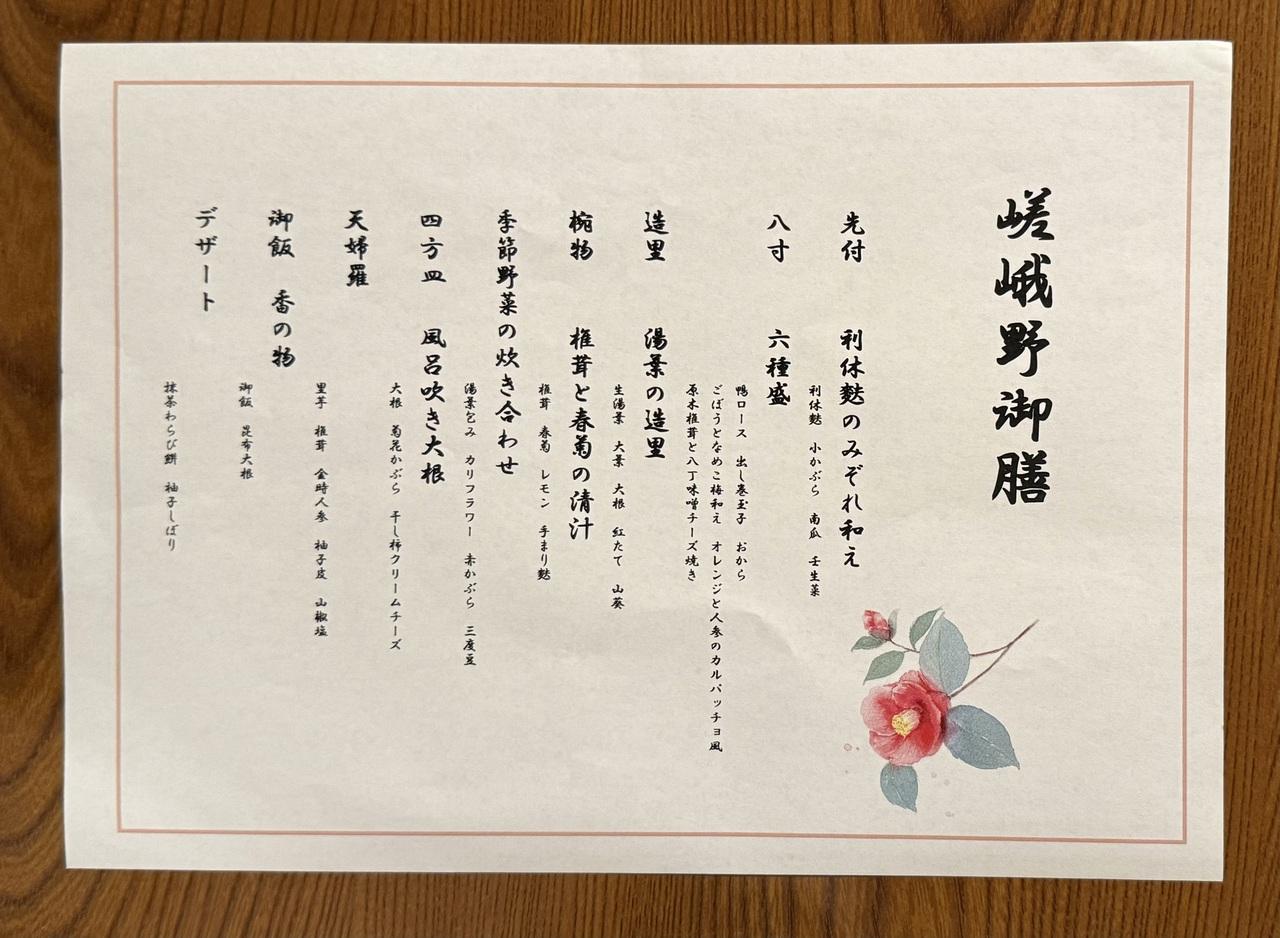 嵯峨野御膳
先付　利休麩のみぞれ和え
利休麩　小かぶら　南瓜　壬生菜
八寸　六種盛
鴨ロース　出し巻玉子　おから
ごぼうとなめこ梅和え　オレンジと人参のカルパッチョ風
原木椎茸と八丁味噌チーズ焼き
造里　湯葉の造里
生湯葉　大葉　大根　紅たて　山葵
椀物　椎茸と春菊の清汁
椎茸　春菊　レモン　手まり麩
季節野菜の炊き合わせ
湯葉包み　カリフラワー　赤かぶら　三度豆
四方皿　風呂吹き大根
大根　菊花かぶら　干し柿クリームチーズ
天婦羅
里芋　椎茸　金時人参　柚子皮　山椒塩
御飯　香の物
御飯　昆布大根
デザート
抹茶わらび餅　柚子しぼり